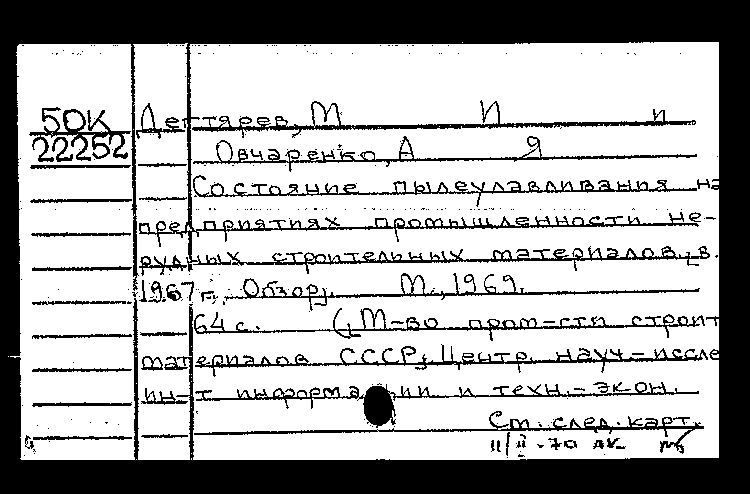 50К Дегтярев, М И и
22252 Овчаренко, А Я
Состояние пылеулавливания на
предприятиях промышленности не-
рудных строительных материалов. в.
1967 г. Обзор. М., 1969.
64 с. (М-во пром-сти строит
материалов СССР; Центр. науч-иссле
ин-т информации и техн.-экон.
См. след. карт.
11/II-70